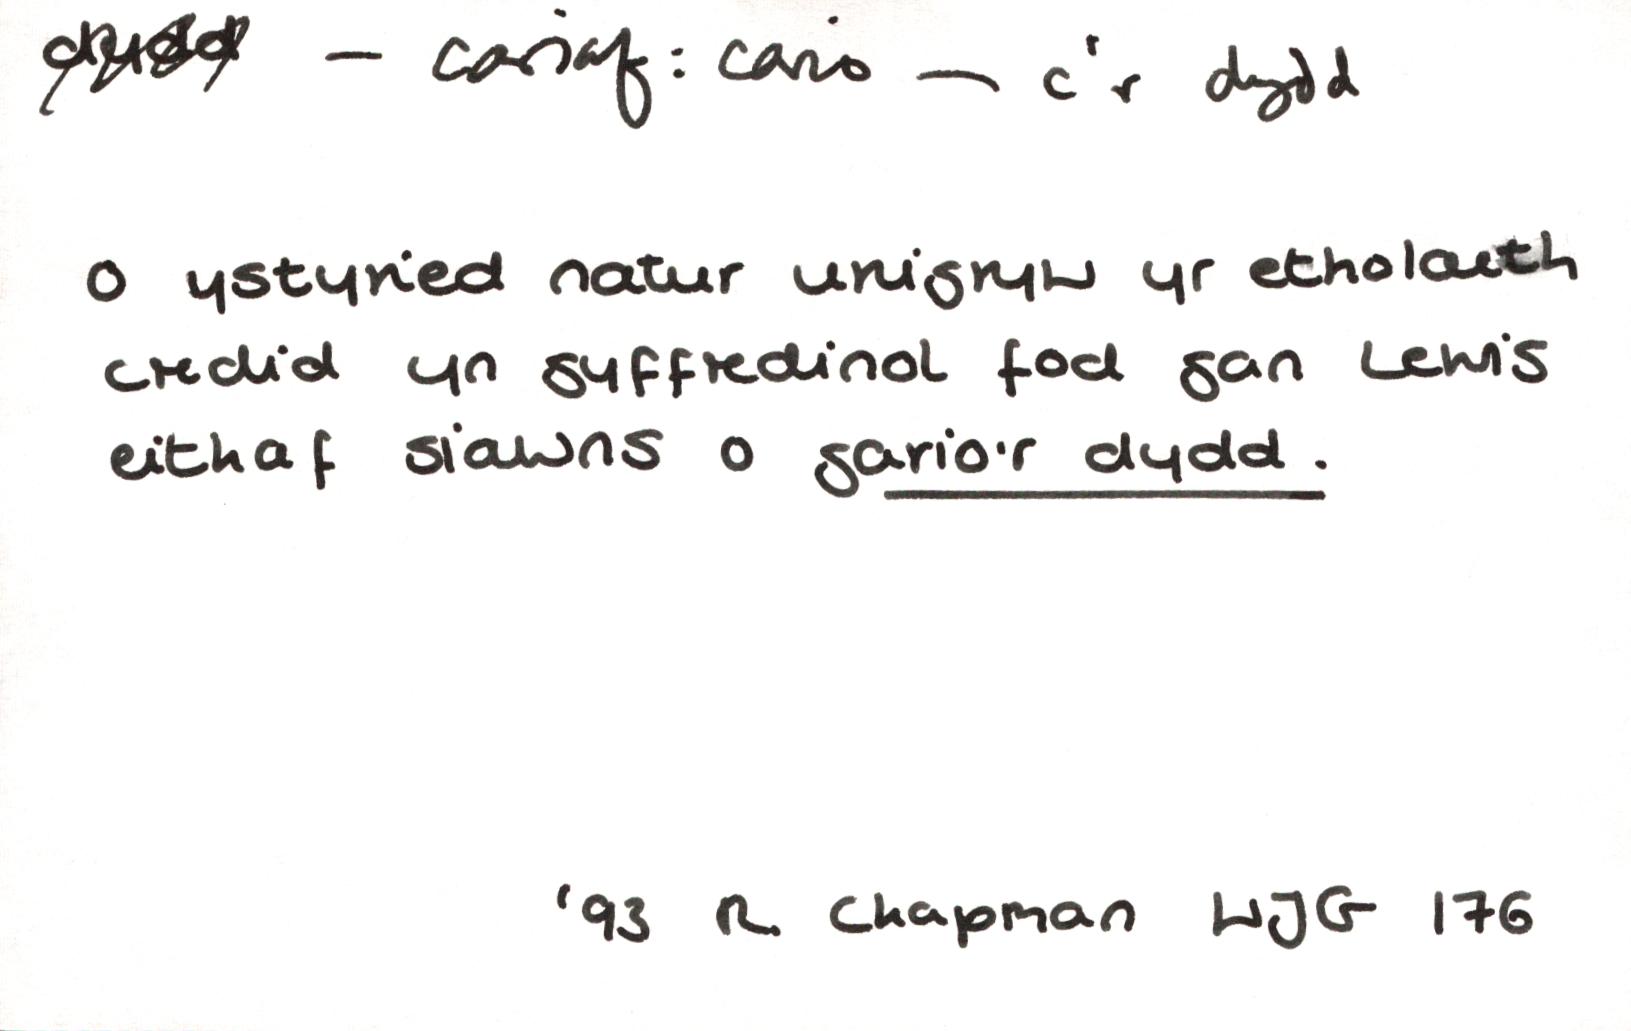 dydd – cariaf: cario – c'r dydd
o ystyried natur unigryw yr etholaeth
credid yn gyffredinol fod gan Lewis
eithaf siawns o gario'r dydd.
'93 R. Chapman WJG 176